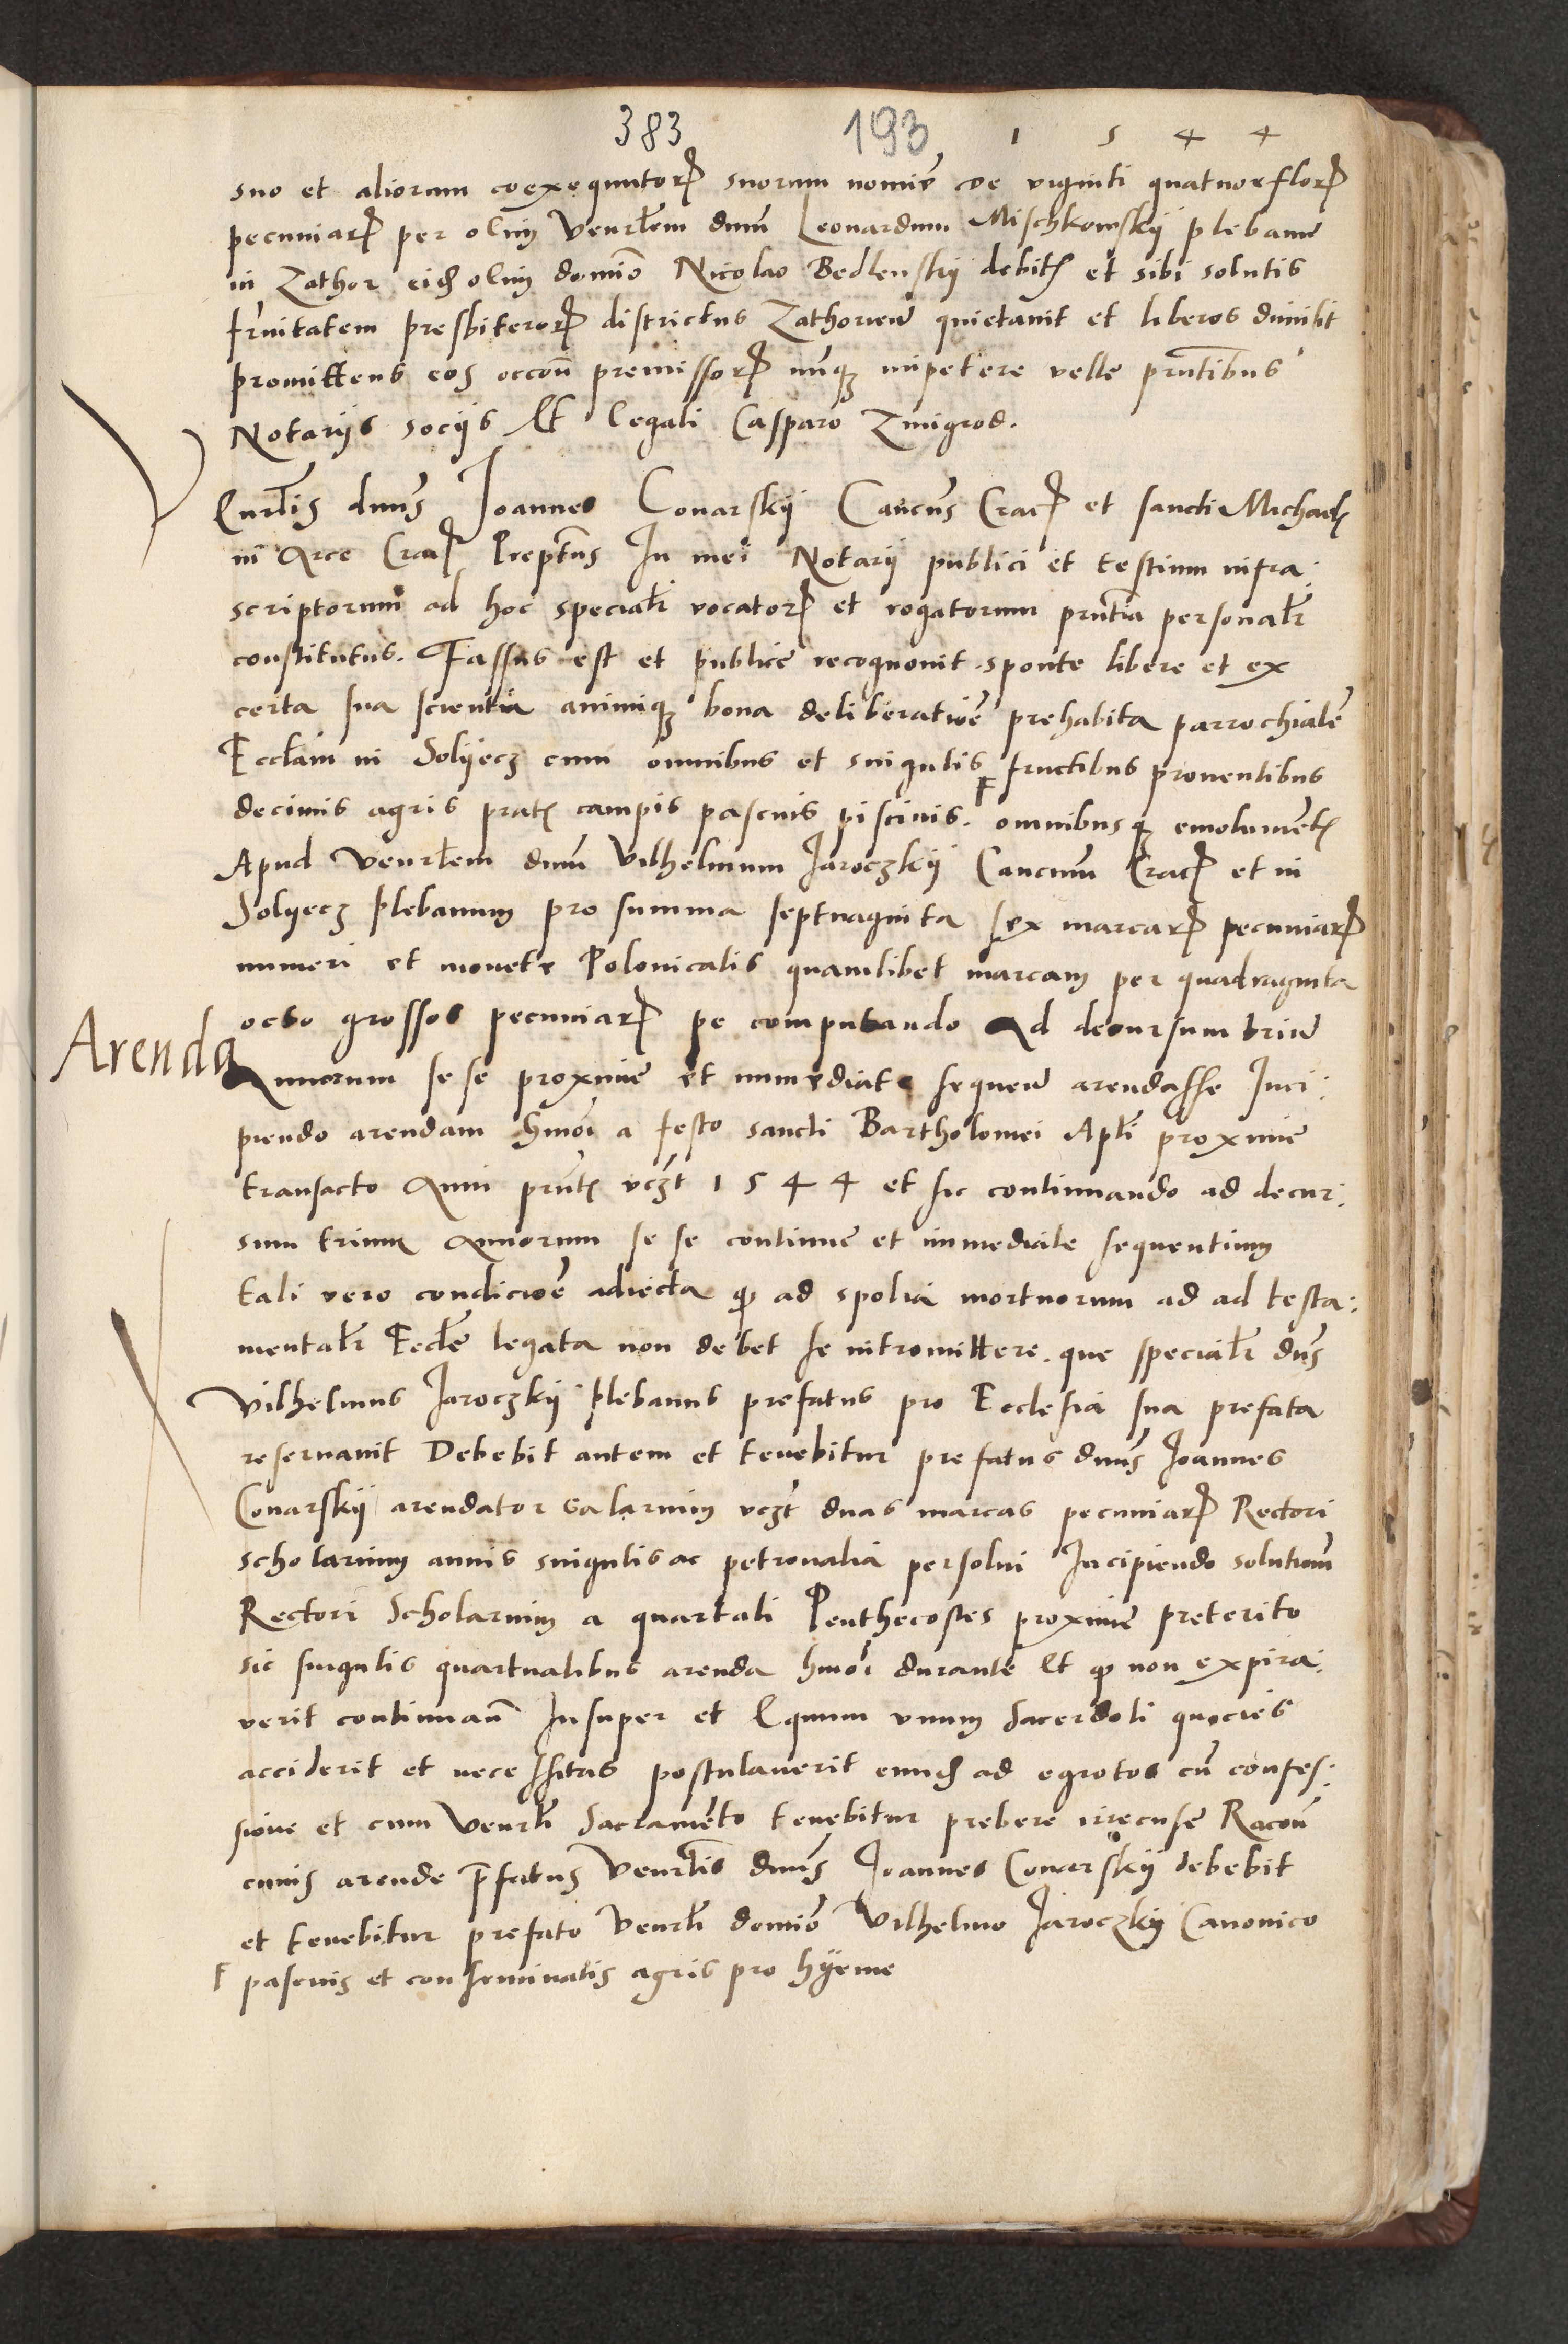 383 193 1 5 4 4
suo et aliorum coexequutorꝝ suorum nomīe de viginti quatuor florꝝ
pecuniarꝝ per olim Venerłem dnūm Leonardum Mischkowskÿ plebanū
in Zathor eidē olim domīo Nicolao Bedlenskÿ debitꝭ et sibi solutis
fr̄nitatem presbiterorꝝ districtus Zathoriēn quietauit et liberos dimisit
promittens eos occōne premissorꝝ nūqꝫ impetere velle pn̄tibus
Notarijs socijs Et legali Casparo Zmigrod.
Venerłis dnūs Joannes Conarskÿ Cancūs Cracꝝ et sancti Michaelꝭ
in Arce Cracꝝ Preptūs In mei Notarij publici et testium infra:
scriptorum ad hoc specialr̄ vocatorꝝ et rogatorum pn̄tia personalr̄
constitutus. Fassus est et publice recognouit sponte libere et ex
certa sua scientia animiqꝫ bona deliberatiōe prehabita parrochialē
Eccłam in Solÿecz cum omnibus et singulis ꟻ fructibus prouentibus
decimis agris pratꝭ campis pascuis piscinis. omnibusqꝫ emolumētꝭ
Apud Venerłem dnūm Vilhelmum Jaroczkÿ Cancūm Cracꝝ et in
Solÿecz plebanum pro summa septuaginta sex marcarꝝ pecuniarꝝ
numeri et monete Polonicalis quamlibet marcam per quadraginta
octo grossos pecuniarꝝ pe computando Ad decursum triū
Arenda
Annorum se se proxime et immediate sequeñ arendasse Inci:
piendo arendam hmōi a festo sancti Bartholomei Apłi proxime
transacto Anni pn̄tꝭ vcꝫt 1544 et sic continuando ad decur:
sum trium Annorum se se continue et immediate sequentium
tali vero condiciōe adiecta ꝙ ad spolia mortuorum ad ad testa:
mentalr̄ Eccłe legata non debet se intromittere. que specialr̄ dn̄s
Vilhelmus Jaroczkÿ plebanus prefatus pro Ecclesia sua prefata
reseruauit Debebit autem et tenebitur prefatus dnūs Joannes
Conarskÿ arendator salarium vcꝫt duas marcas pecuniarꝝ Rectori
scholarium annis singulis ac petronalia persolui Incipiendo solutiōm
Rectori Scholarium a quartali Penthecostes proxime preterito
sic singulis quartualibus arenda hmōi durante Et ꝙ non expira:
verit continuañ Insuper et Equum vnum Sacerdoti quocies
acciderit et necessitas postulauerit eundē ad egrotos cū confes:
sione et cum Venerłi Sacramēto tenebitur prebere irrecuse Racōne
cuius arende p̄fatus Venerłis dnūs Joannes Conarskÿ debebit
et tenebitur prefato Venerłi domīo Vilhelmo Jaroczkÿ Canonico
ꟻ pascuis et conseminatis agris pro hÿeme